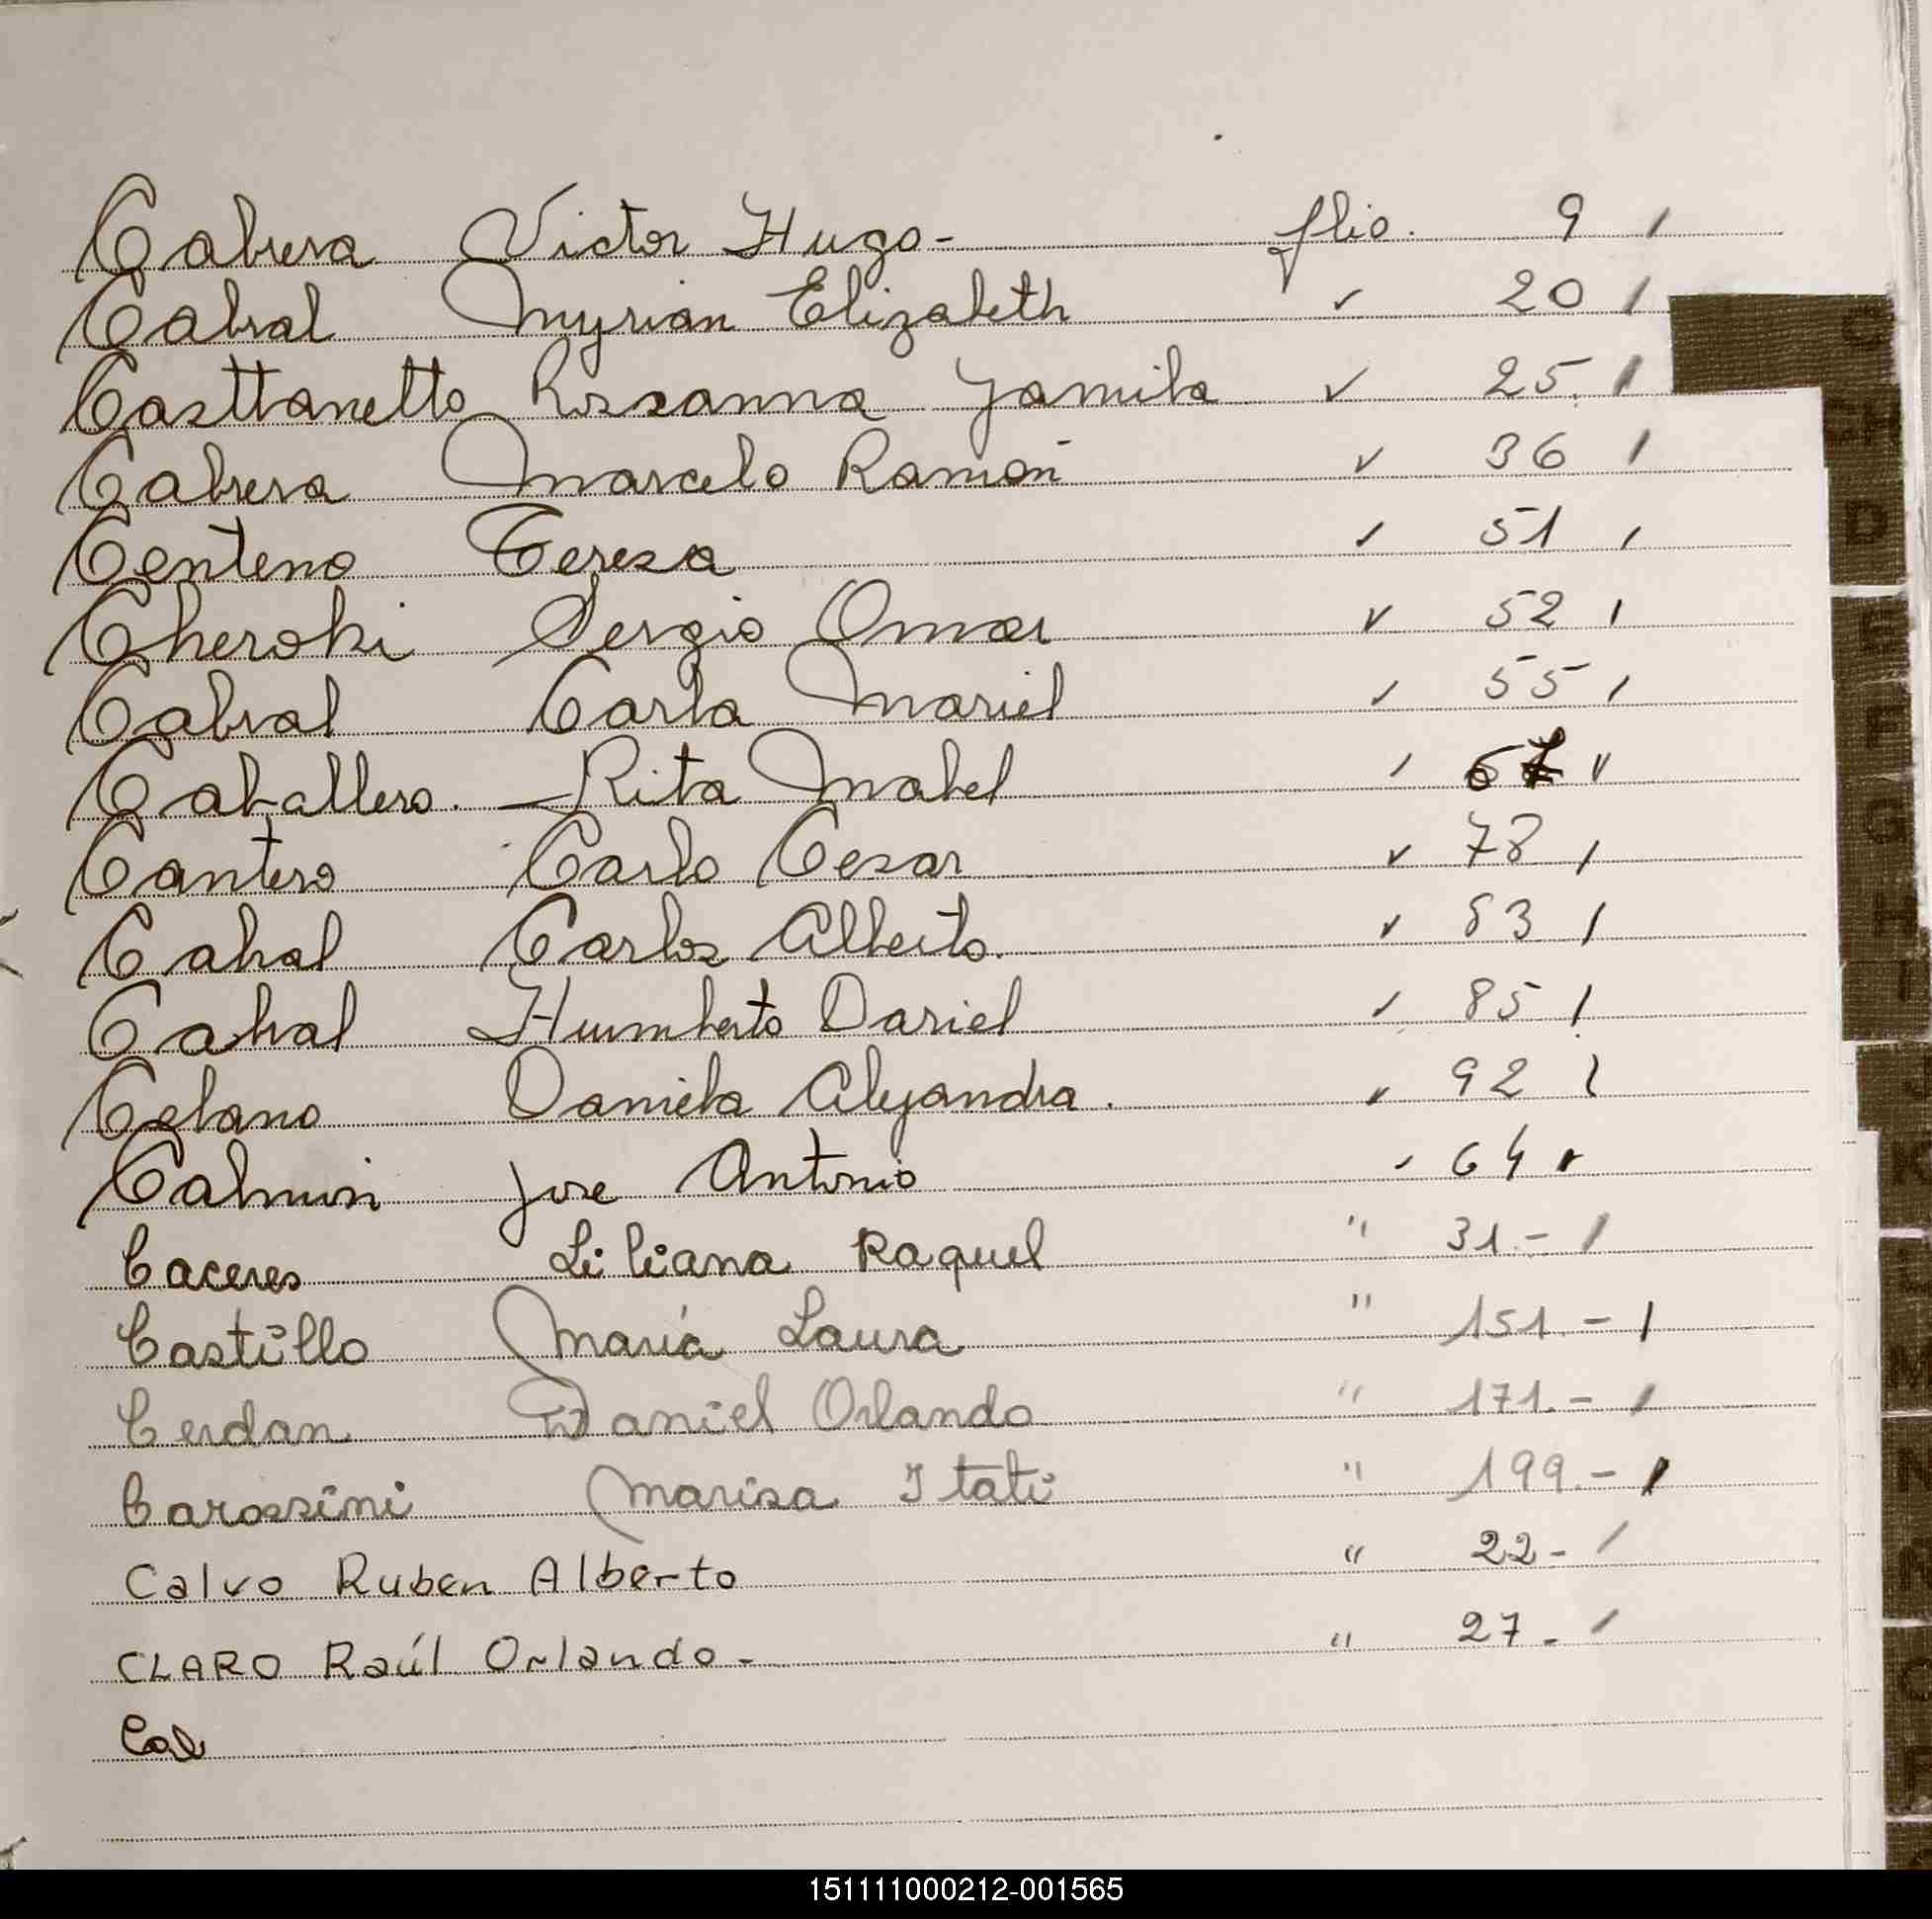 Cabrera Victor Hugo- flio. 9 /
Cabral Myrian Elizabeth ✓ 20 /
Casttanetto Rossanna Yamila ✓ 25. /
Cabrera Marcelo Ramón ✓ 36 /
Centeno Teresa ✓ 51 /
Cheroki Sergio Omar ✓ 52 /
Cabral Carla Mariel ✓ 55 /
Caballero. - Rita Mabel ✓
Cantero Carlo Cesar ✓ 78 /
Cabral Carlos Alberto. ✓ 83 /
Cabral Humberto Dariel ✓ 85 /
Celano Daniela Alejandra. ✓ 92 /
Jose Antonio ✓ 64
Caceres Liliana Raquel " 31.- /
Castillo María Laura " 151.- /
Cerdan Daniel Orlando " 171.- /
Carossini Marisa Itati " 199.- /
Calvo Ruben Alberto " 22- /
CLARO Raúl Orlando- " 27- /
Cal
C
D
E
F
G
H
I
J
K
L
M
N
151111000212-001565